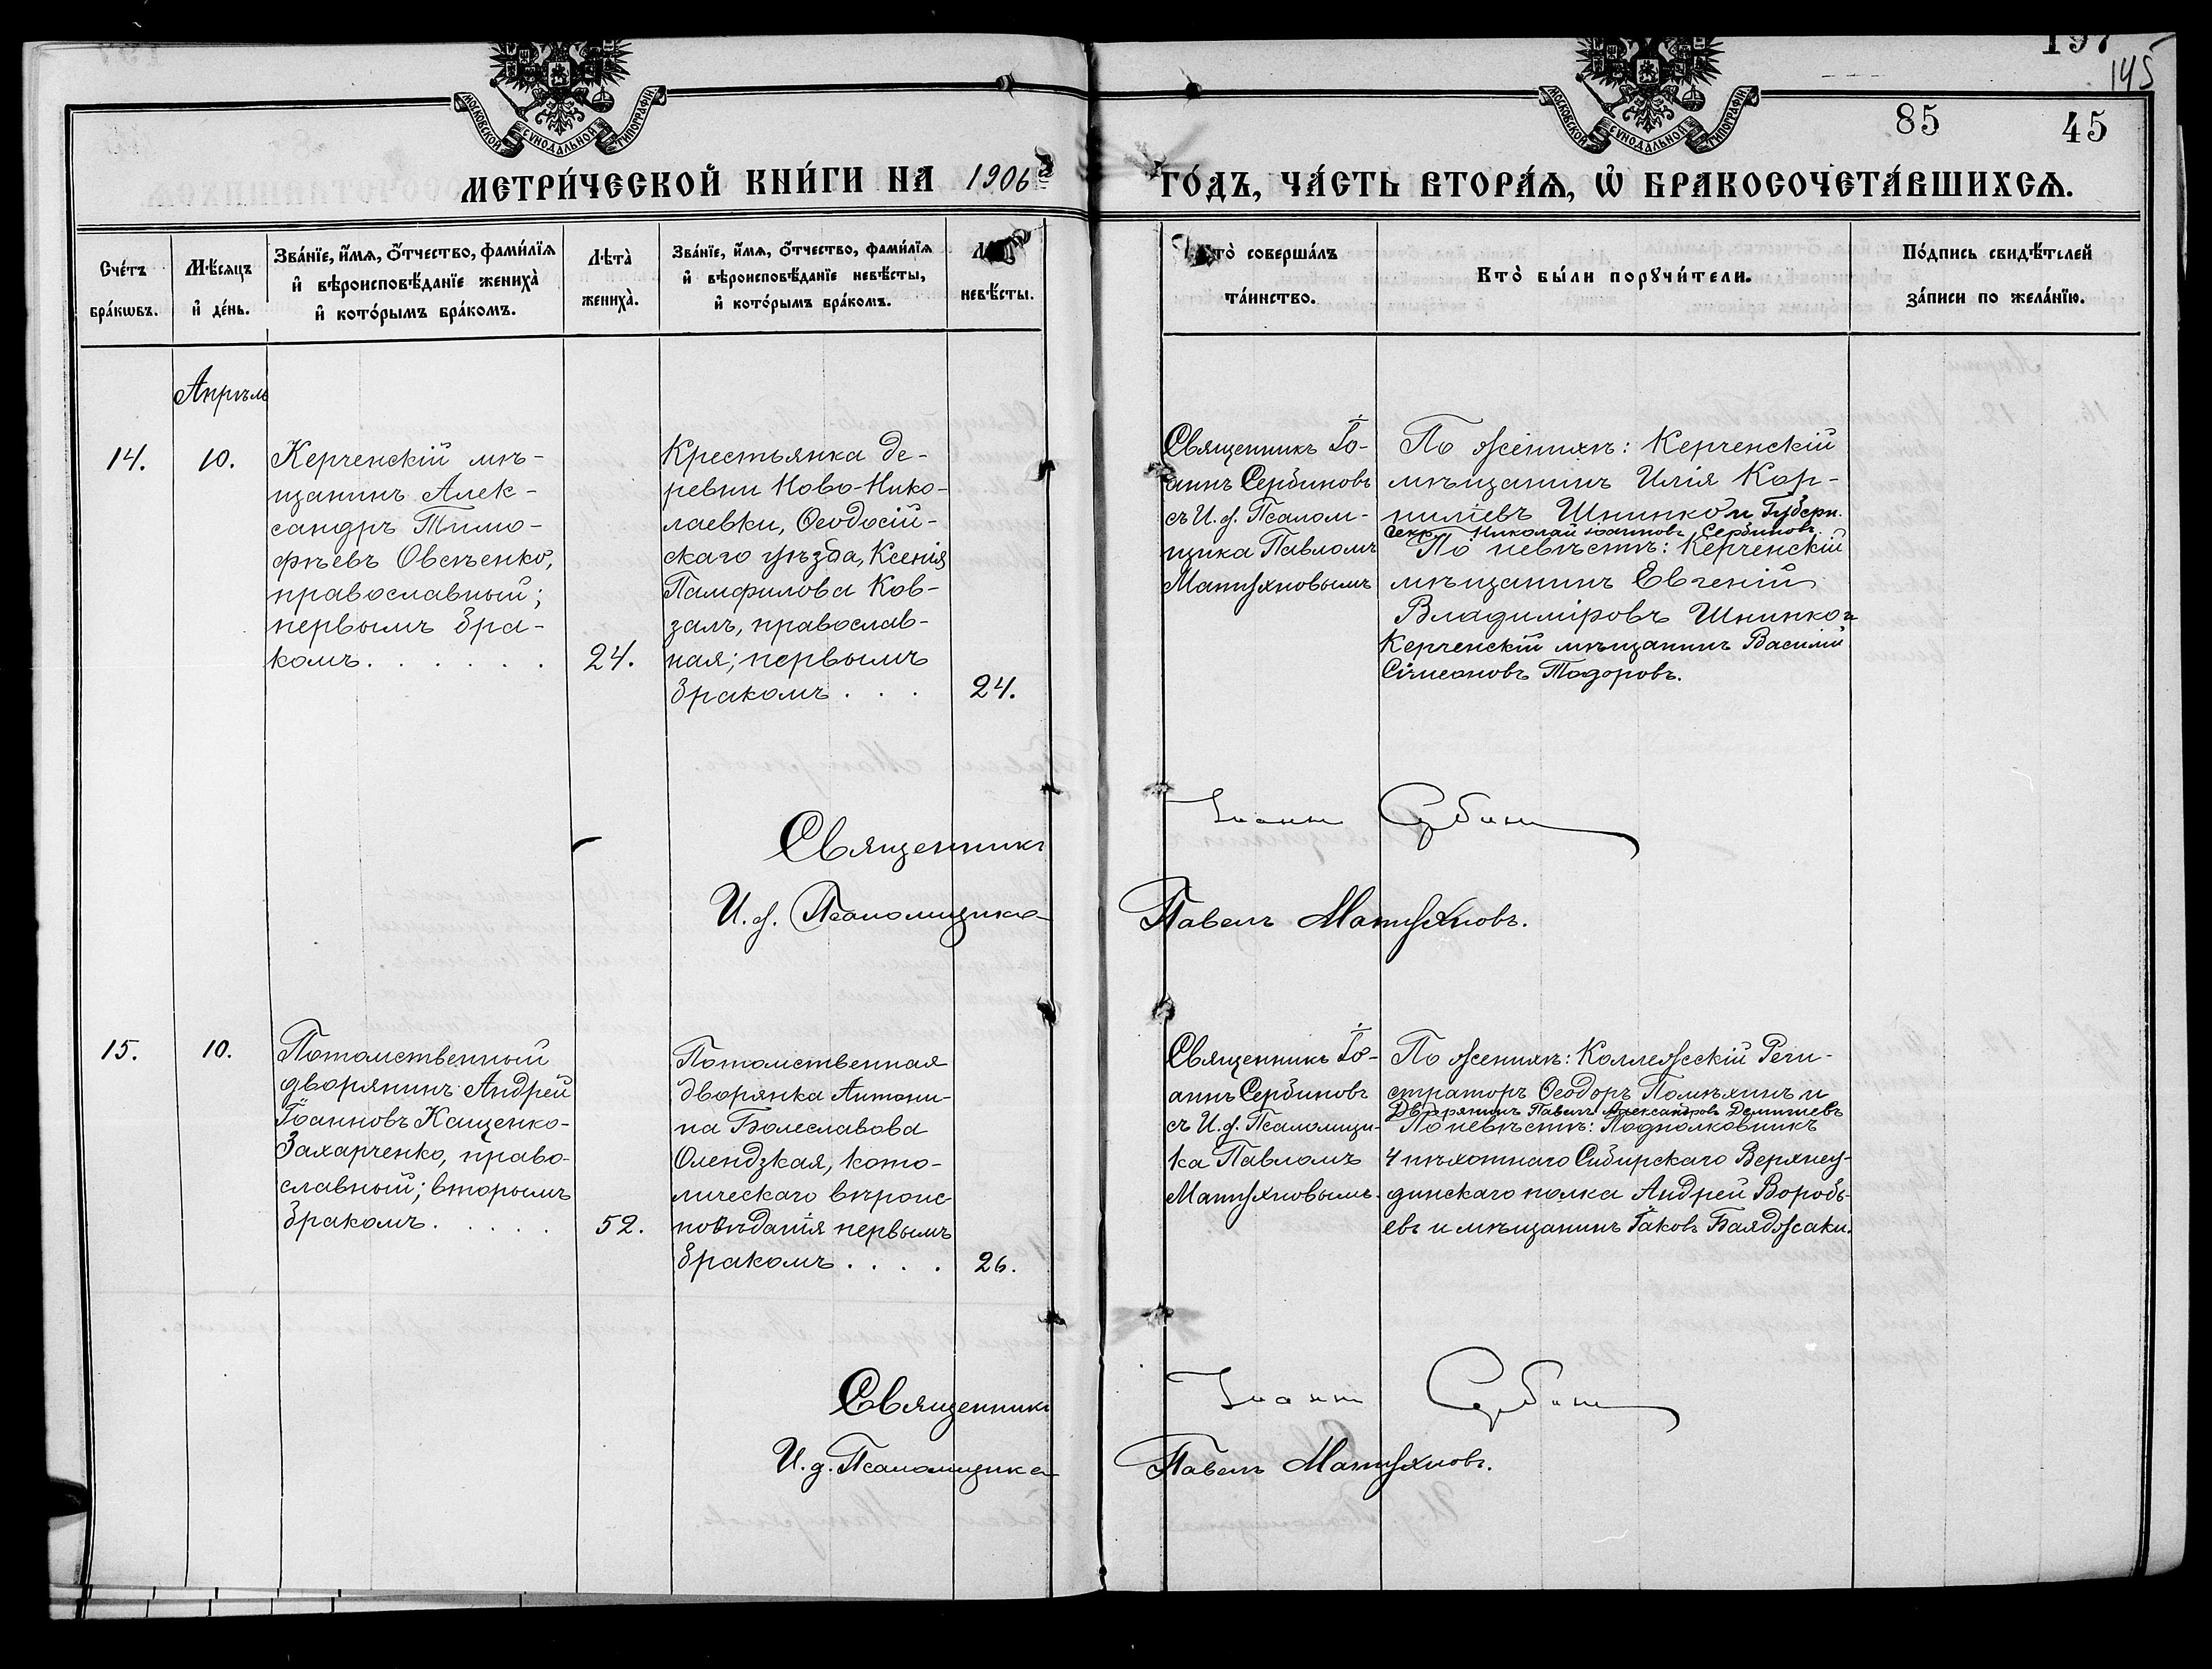 МОСКОВСКОЙ СѴНОДАЛЬНОЙ ТИПОГРАФІИ
МОСКОВСКОЙ СѴНОДАЛЬНОЙ ТИПОГРАФІИ
197
145
85
45
МЕТРИ́ЧЕСКОЙ КНИ́ГИ НА 1906
ГО́ДЪ, ЧА́СТЬ ВТОРА́Ѧ, Ѡ БРАКОСОЧЕТА́ВШИХСѦ.
Сче́тъ бра́кѡвъ.
Мѣ́сѧцъ и де́нь.
Зва́нїе, и́мѧ, о́тчество, фами́лїѧ
и вѣроисповѣ́данїе жениха̀
и кото́рымъ бра́комъ.
Лѣта̀ жениха̀.
Зва́нїе, и́мѧ, о́тчество, фами́лїѧ
и вѣроисповѣ́данїе невѣ́сты,
и кото́рымъ бра́комъ.
невѣ́сты.
Кто̀ соверша́лъ
та́инство.
Кто̀ бы́ли порꙋчи́тели.
По́дпись свидѣ́телей
за́писи по жела́нїю.
Апрѣль
14.
10.
Керченскій мѣ-
щанинъ Алек-
сандръ Тимо-
фѣевъ Овсѣенко,
православный;
первымъ бра-
комъ . . . . . .
24.
Крестьянка де-
ревни Ново-Нико-
лаевки, Ѳеодосій-
скаго уѣзда, Ксенія
Памфилова Ков-
заль, православ-
ная; первымъ
бракомъ . . .
24.
Священникъ Іо-
аннъ Сербиновъ
съ И. д. Псалом-
щика Павломъ
Матужновымъ
По женихѣ: Керченскій
мѣщанинъ Илія Кор-
ниліевъ Шнинко и Губерн.
Секр. Николай Іоанновъ Сербиновъ.
По невѣстѣ: Керченскій
мѣщанинъ Евгеній
Владиміровъ Шнинко и
Керченскій мѣщанинъ Василій
Сѵмеоновъ Тодоровъ.
Священникъ
Іоаннъ Сербин
И. д. Псаломщика
Павелъ Матужновъ.
15.
10.
Потомственный
дворянинъ Андрей
Іоанновъ Кащенко-
Захарченко, право-
славный; вторымъ
бракомъ . . . . .
52.
Потомственная
дворянка Антони-
на Болеславова
Олендзкая, като-
лическаго вѣроис
повѣданія первымъ
бракомъ . . . .
26.
Священникъ Іо-
аннъ Сербиновъ
съ И. д. Псаломщи-
ка Павломъ
Матужновымъ.
По женихѣ: Коллежскій Реги-
страторъ Ѳеодоръ Помѣхинъ и
Дворянинъ Павелъ Александровъ Дементьевъ
По невѣстѣ: Подполковникъ
4 пѣхотнаго Сибирскаго Верхнеу-
динскаго полка Андрей Воробь-
евъ и мѣщанинъ Іаковъ Баяджаки.
Священникъ
Іоаннъ Сербин
И. д. Псаломщика
Павелъ Матужновъ.